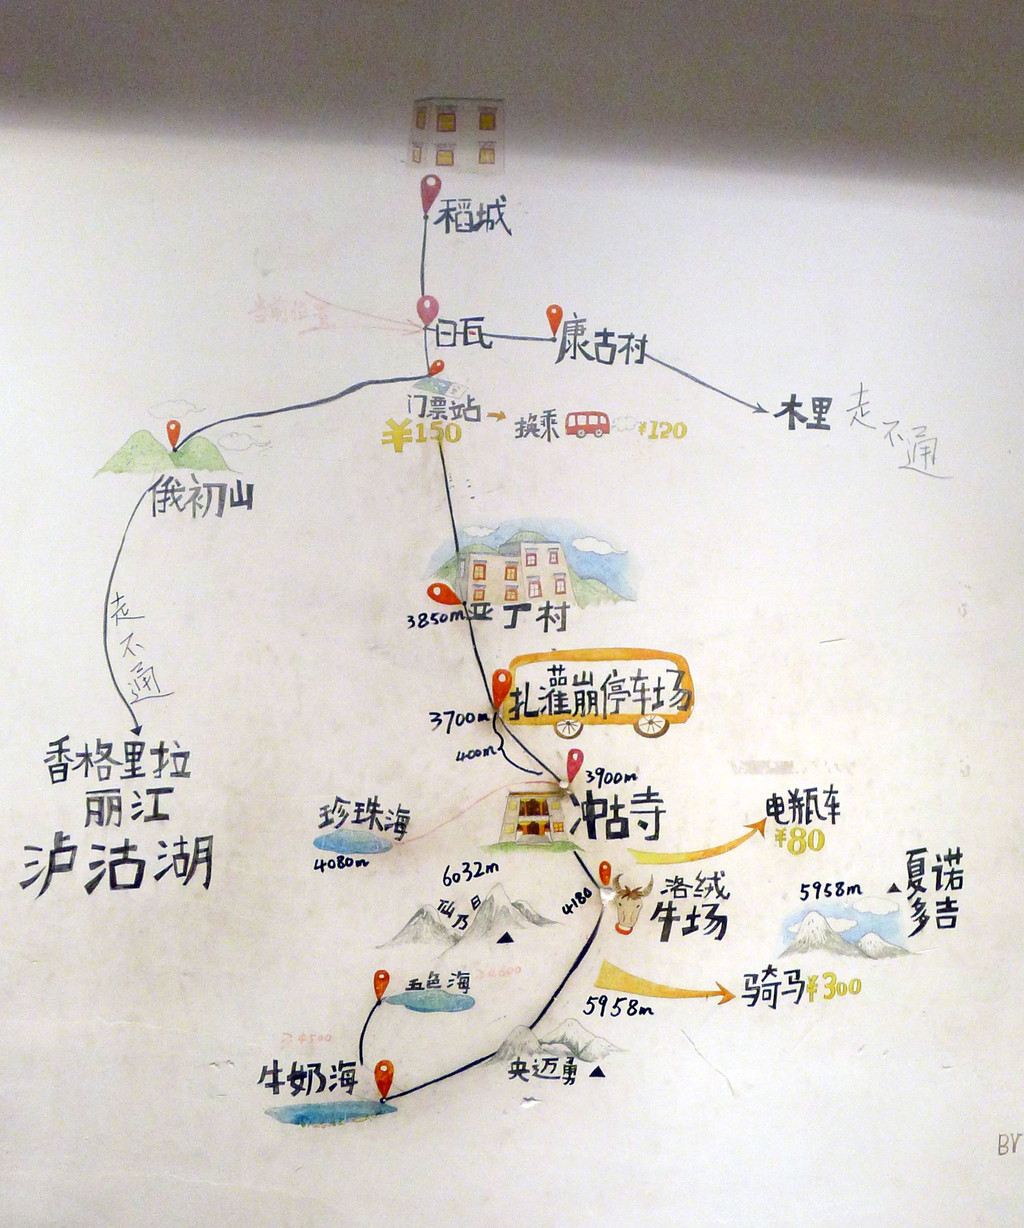 稻城
当前位置
日瓦
康古村
木里
走不通
门票站
¥150
换乘
¥120
俄初山
走不通
香格里拉
丽江
泸沽湖
3850m
亚丁村
扎灌崩停车场
3700m
400m
3900m
冲古寺
珍珠海
4080m
电瓶车
¥80
6032m
仙乃日
4180
洛绒
牛场
5958m
夏诺
多吉
骑马¥300
5958m
五色海
牛奶海
央迈勇
BY